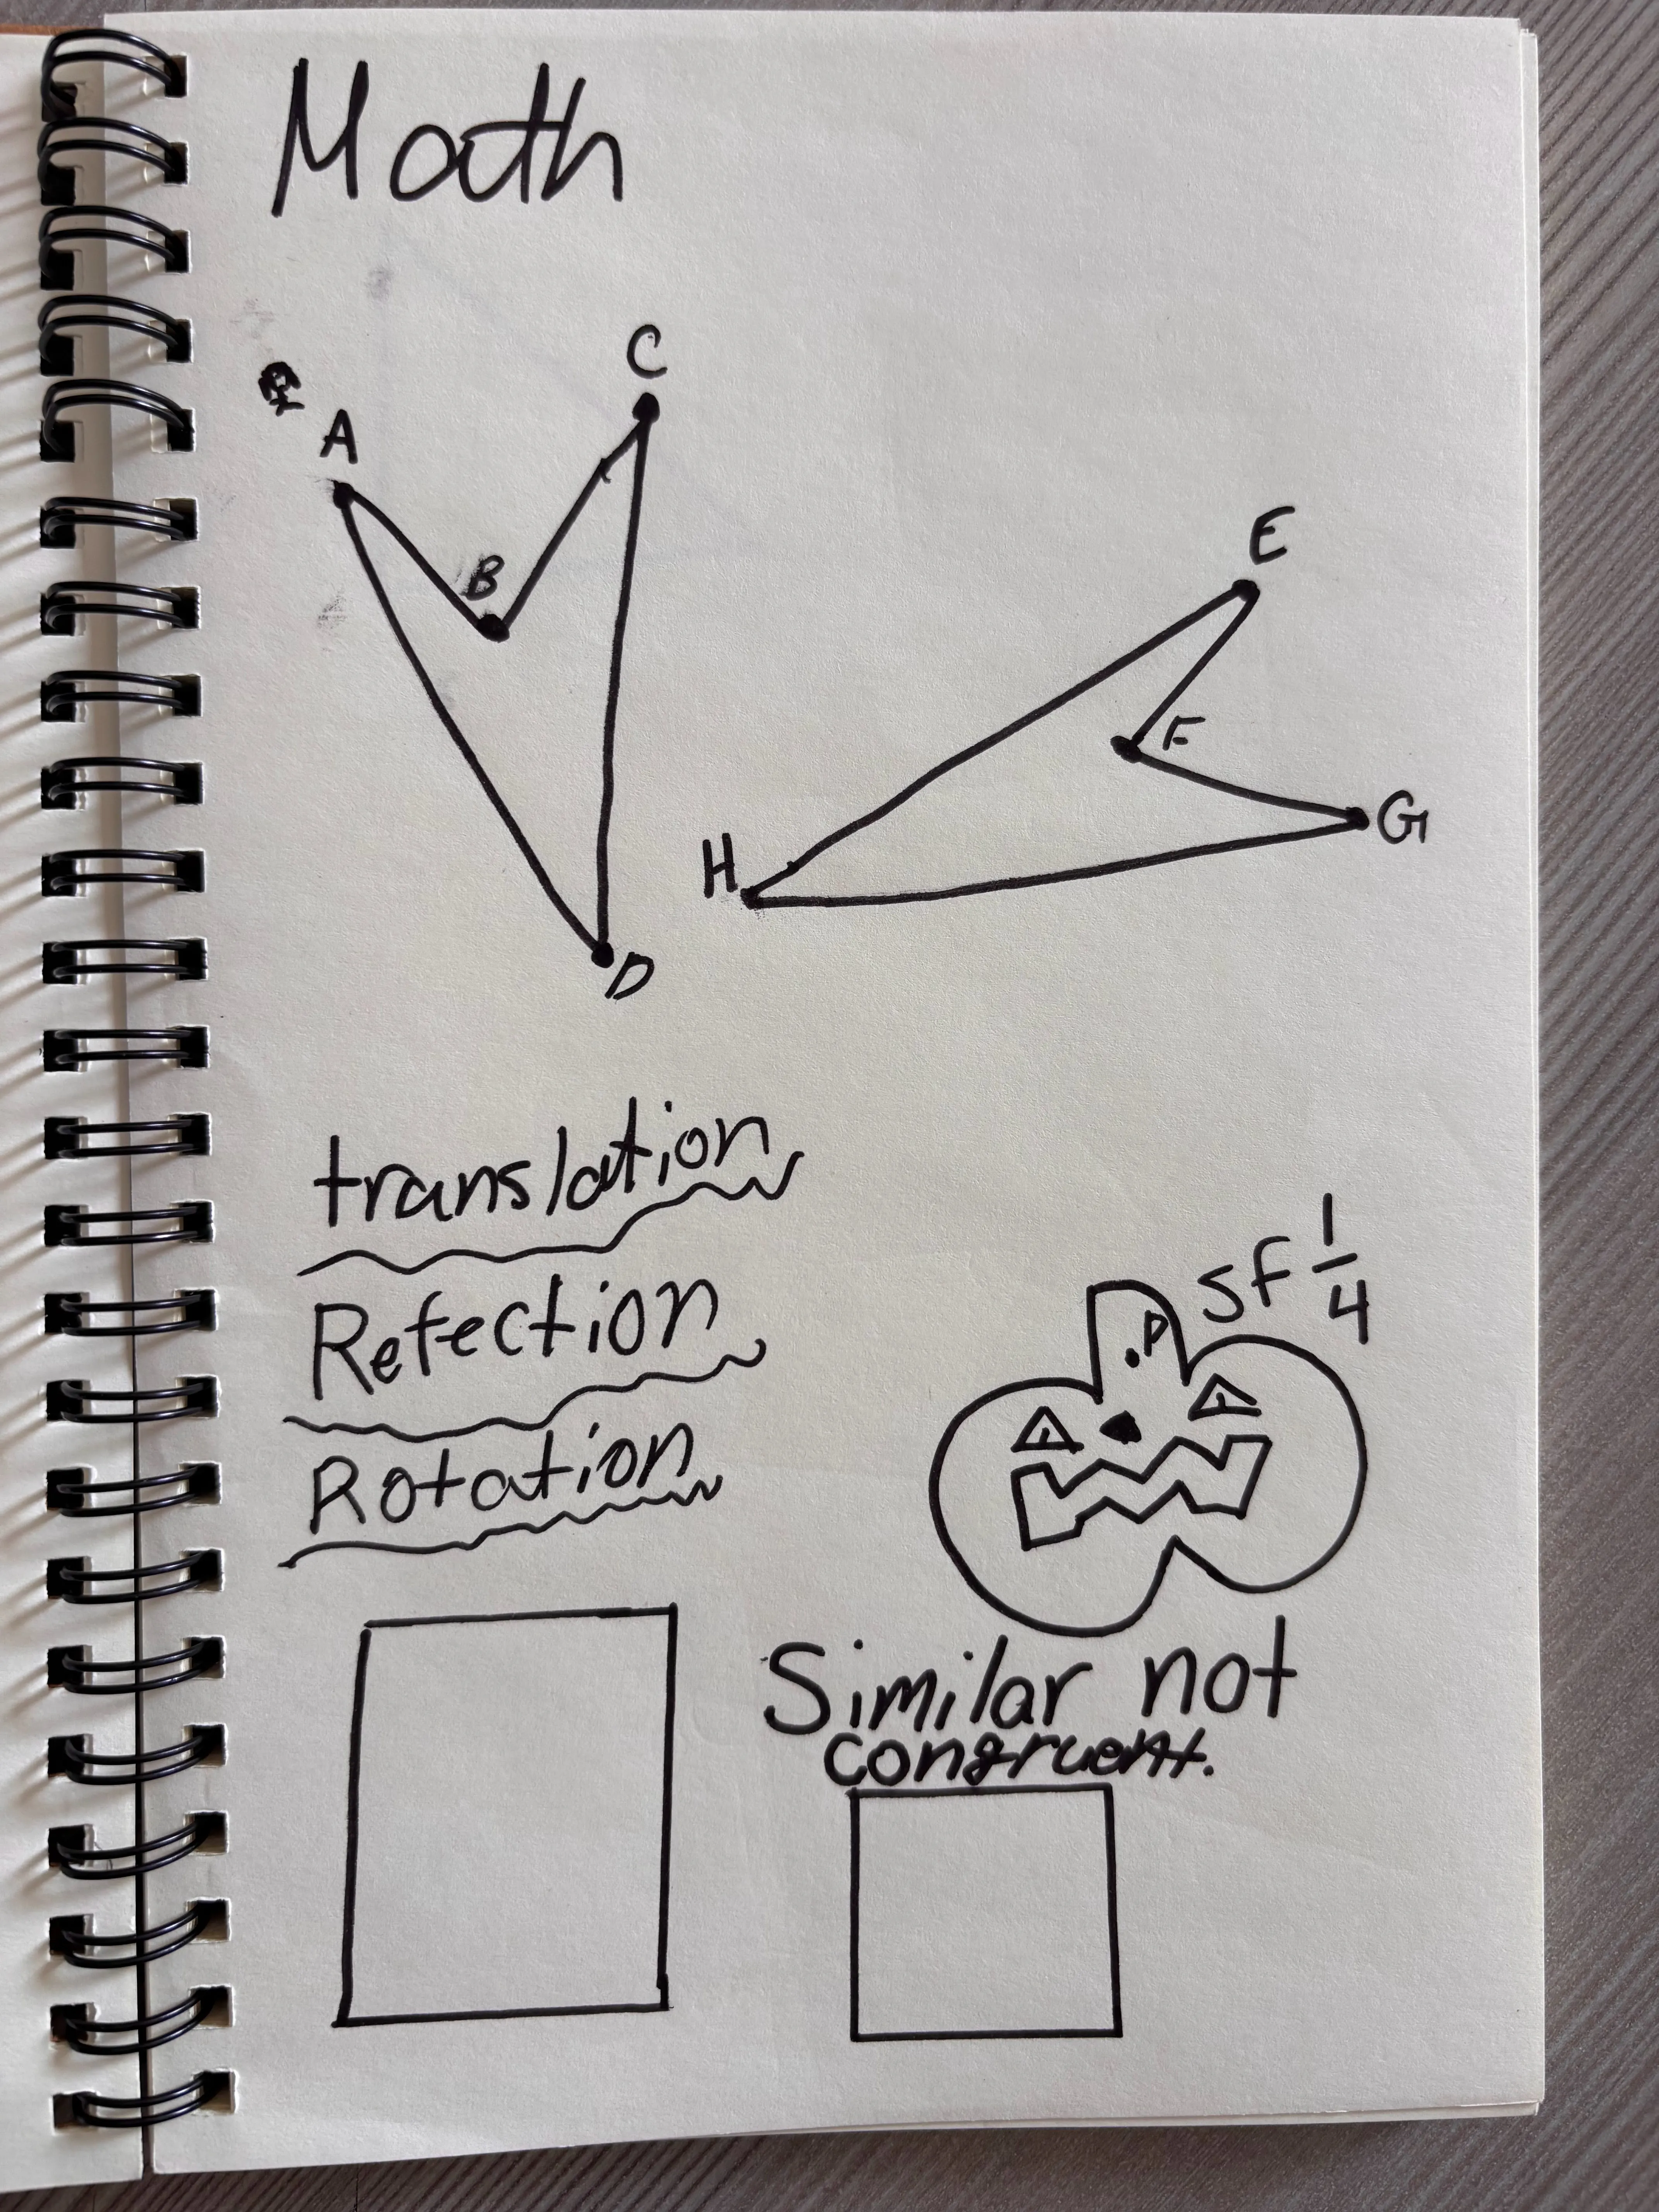 Math
C
A
B
E
F
G
H
D
translation
Refection
Rotation
SF 1/4
P
Similar not
congruent.